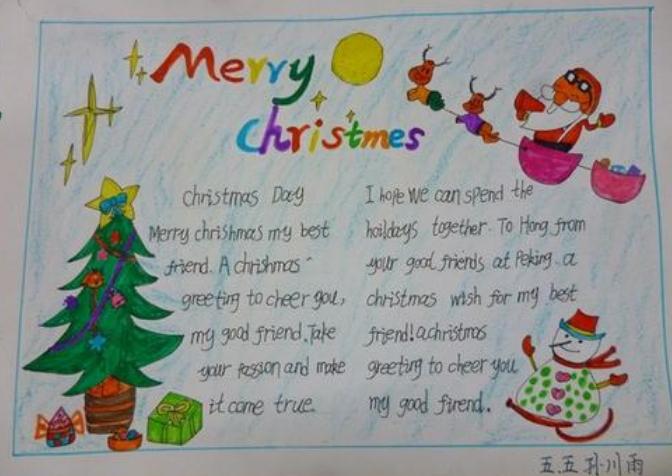 Merry
christmes
Christmas Day
Merry chrishmas my best
friend. A chrishmas
greeting to cheer you,
my good friend. Take
your passion and make
it come true.
I hope we can spend the
hoildays together. To Hong from
your good friends at Peking. a
christmas wish for my best
friend! a christmas
greeting to cheer you
my good firend.
五.五 孙川雨